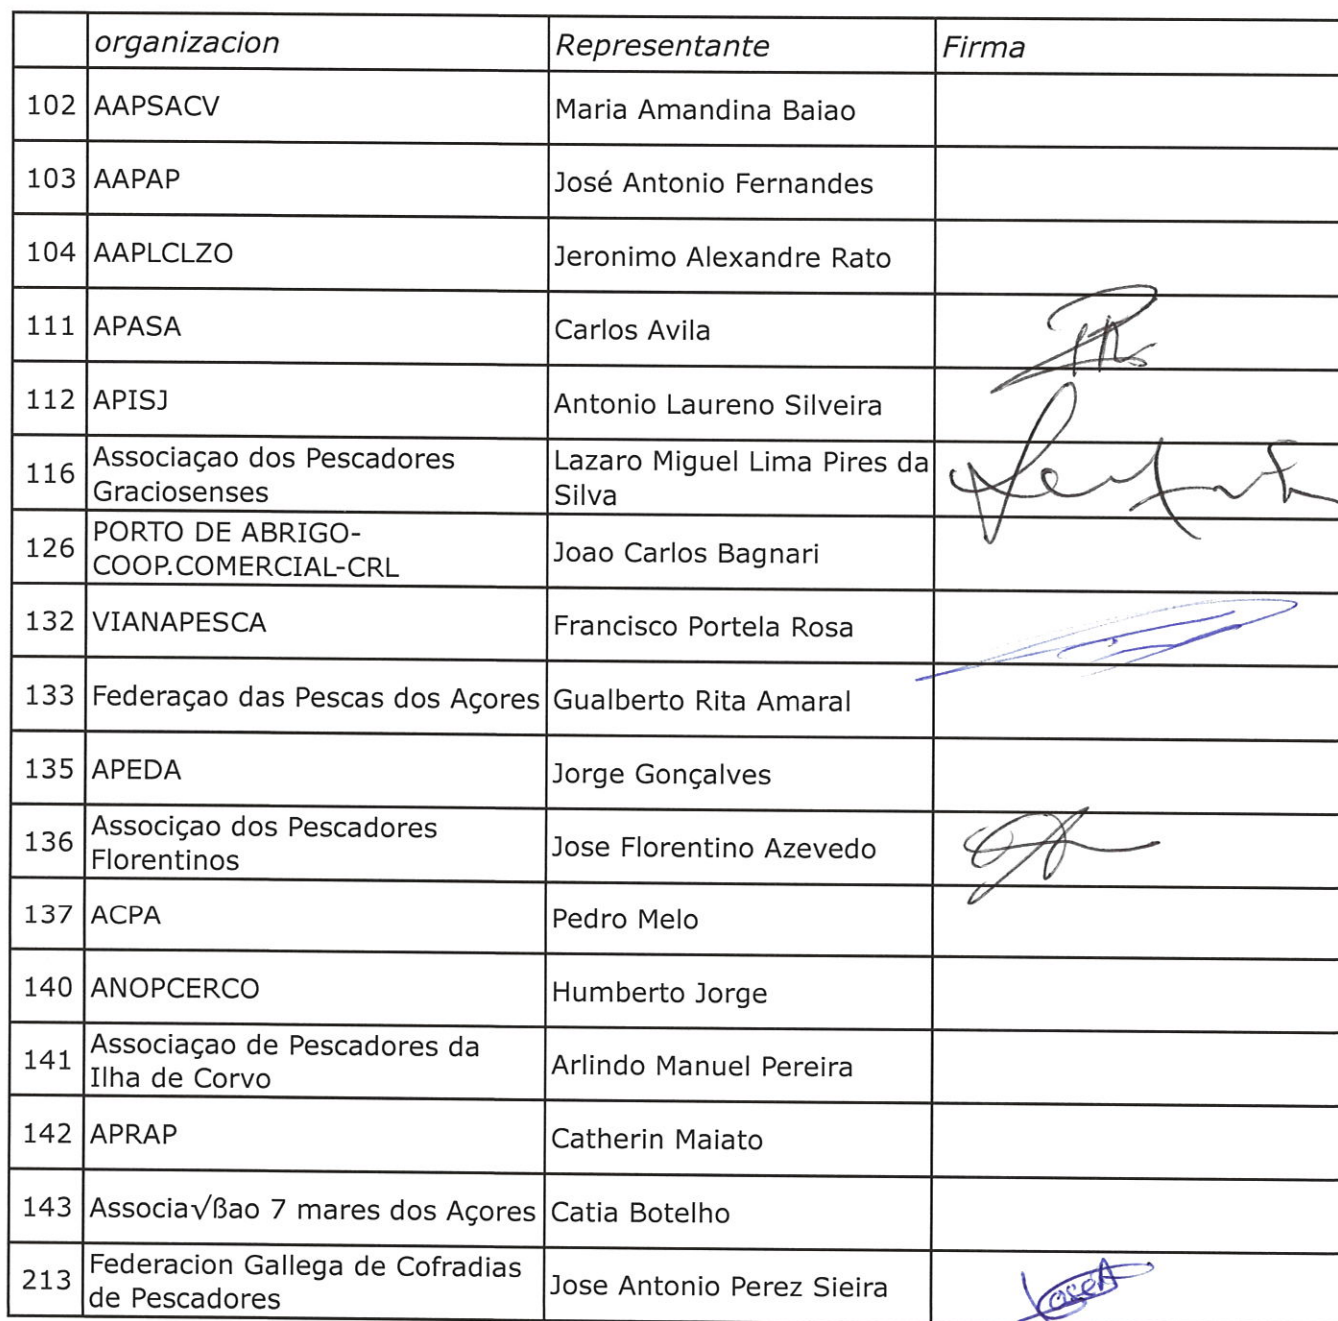 organizacion Representante Firma
102 AAPSACV Maria Amandina Baiao
103 AAPAP José Antonio Fernandes
104 AAPLCLZO Jeronimo Alexandre Rato
111 APASA Carlos Avila
112 APISJ Antonio Laureno Silveira
116 Associaçao dos Pescadores
Graciosenses
Lazaro Miguel Lima Pires da
Silva
126 PORTO DE ABRIGO-
COOP.COMERCIAL-CRL
Joao Carlos Bagnari
132 VIANAPESCA Francisco Portela Rosa
133 Federaçao das Pescas dos Açores Gualberto Rita Amaral
135 APEDA Jorge Gonçalves
136 Associçao dos Pescadores
Florentinos
Jose Florentino Azevedo
137 ACPA Pedro Melo
140 ANOPCERCO Humberto Jorge
141 Associaçao de Pescadores da
Ilha de Corvo
Arlindo Manuel Pereira
142 APRAP Catherin Maiato
143 Associa√ßao 7 mares dos Açores Catia Botelho
213 Federacion Gallega de Cofradias
de Pescadores
Jose Antonio Perez Sieira